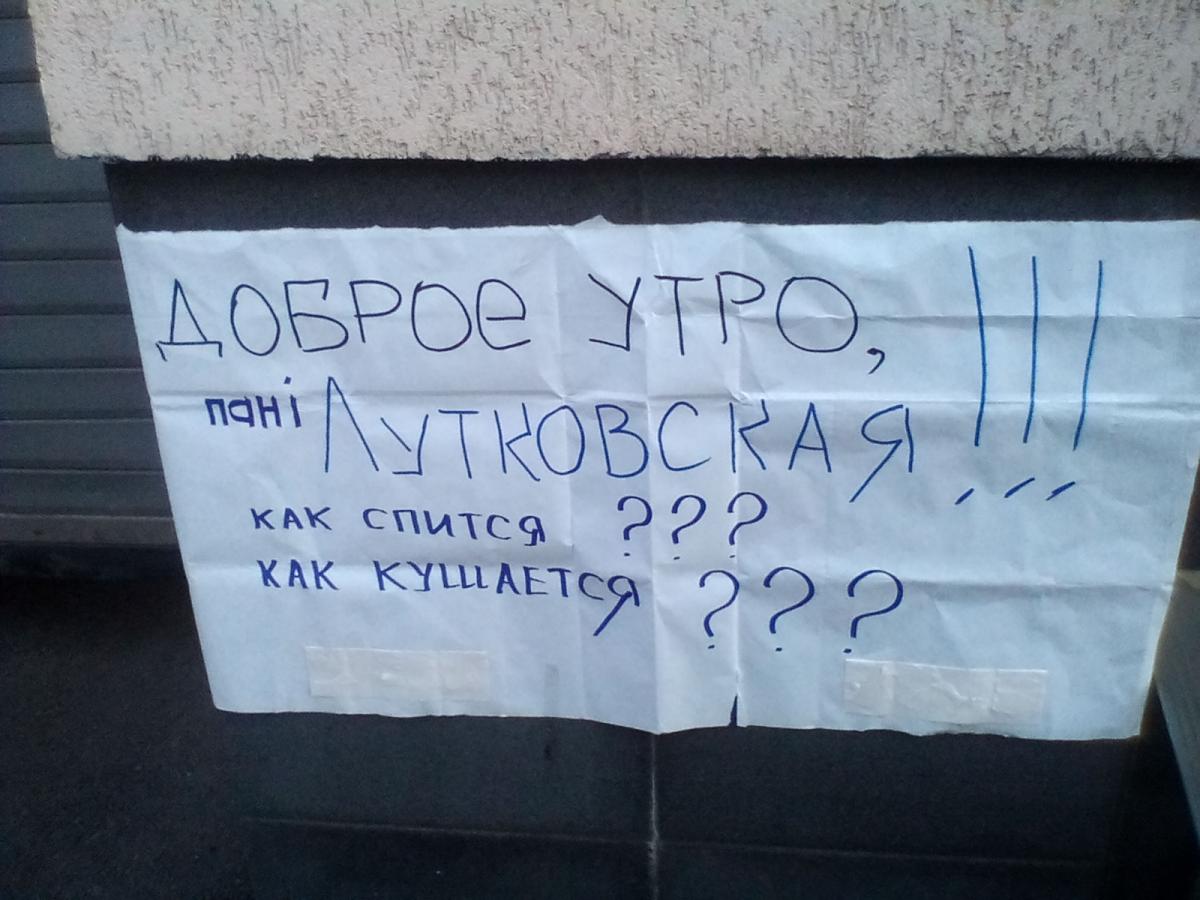 ДОБРОЕ УТРО,
пані ЛУТКОВСКАЯ!!!
КАК СПИТСЯ ???
КАК КУШАЕТСЯ ???